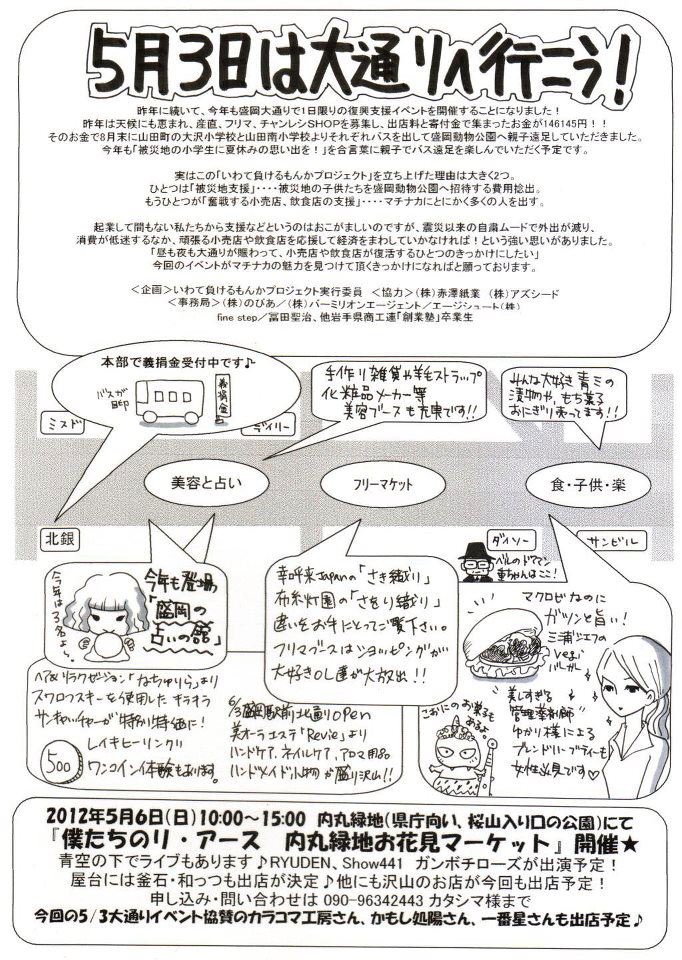 5月3日は大通りへ行こう!
昨年に続いて、今年も盛岡大通りで1日限りの復興支援イベントを開催することになりました!
昨年は天候にも恵まれ、産直、フリマ、チャンレシSHOPを募集し、出店料と寄付金で集まったお金が146145円!!
そのお金で8月末に山田町の大沢小学校と山田南小学校よりそれぞれバスを出して盛岡動物公園へ親子遠足していただきました。
今年も「被災の小学生に夏休みの思い出を!」を合言葉に親子でバス遠足を楽しんでいただく予定です。
実はこの「いわて負けるもんかプロジェクト」を立ち上げた理由は大きく2つ。
ひとつは「被災地支援」・・・・被災地の子供たちを盛岡動物公園へ招待する費用捻出。
もうひとつが「奮戦する小売店、飲食店の支援」・・・・マチナカにとにかく多くの人を出す。
起業して間もない私たちから支援などというのはおこがましいのですが、震災以来の自粛ムードで外出が減り、
消費が低迷するなか、頑張る小売店や飲食店を応援して経済をまわしていかなければ!という強い思いがありました。
「昼も夜も大通りが賑わって、小売店や飲食店が復活するひとつのきっかけにしたい」
今回のイベントがマチナカの魅力を見つけて頂くきっかけになればと願っております。
<企画>いわて負けるもんかプロジェクト実行委員 <協力>(株)赤澤紙業 (株)アズシード
<事務局>(株)のびあ/(株)バーミリオンエージェント/エージシュート(株)
fine step/冨田聖治、他岩手県商工連「創業塾」卒業生
本部で義捐金受付中です♪
バスが
目印
義捐金
ミスド
デイリー
手作り雑貨や羊毛ストラップ
化粧品メーカー等
美容ブースも充実です!!
みんな大好き青三の
漬物や、もち菓子
おにぎり売ってます!!
美容と占い
フリーマケット
食・子供・楽
北銀
ダイソー
サンビル
ベルのドアマン
重ちゃんはここ!
今年は3名よ〜
今年も登場
「盛岡の
占いの館」
幸呼来Japanの「さき織り」
布糸灯園の「さをり織り」
違いをお手にとってご覧下さい。
フリマブースはショッピングが
大好きOL達が大放出!!
マクロビなのに
ガツンと旨い!
三浦シェフの
Vegi
バーガー
ヘア&リラクゼーション「なちゅりら」より
スワロフスキーを使用したキラキラ
サンキャッチャーが特別特価に!
レイキヒーリング
500
ワンコイン体験もあります。
6/3盛岡駅前北通りOPEN
美オーラエステ「Revie」より
ハンドケア、ネイルケア、アロマ用品
ハンドメイド小物が盛り沢山!!
こおにのお菓子も
あるよ。
美しすぎる
"管理薬剤師"
ゆかり様による
ブレンドハーブティーも
女性必見です♡
2012年5月6日(日)10:00〜15:00 内丸緑地(県庁向い、桜山入り口の公園)にて
『僕たちのリ・アース 内丸緑地お花見マーケット』開催★
青空の下でライブもあります♪RYUDEN、Show441 ガンボチローズが出演予定!
屋台には釜石・和っつも出店が決定♪他にも沢山のお店が今回も出店予定!
申し込み・問い合わせは 090-96342443 カタシマ様まで
今回の5/3大通りイベント協賛のカラコマ工房さん、かもし処陽さん、一番星さんも出店予定♪